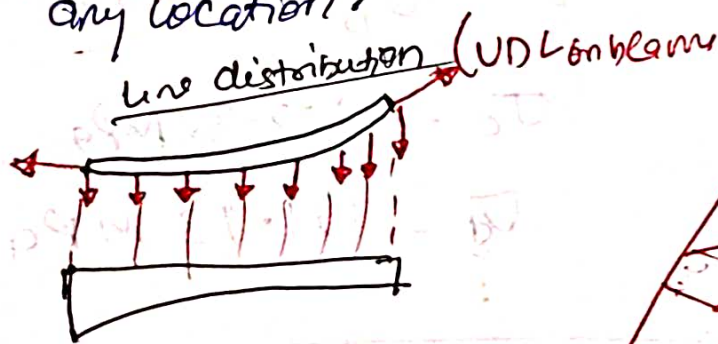 any location.
Line distribution (UDL on beams